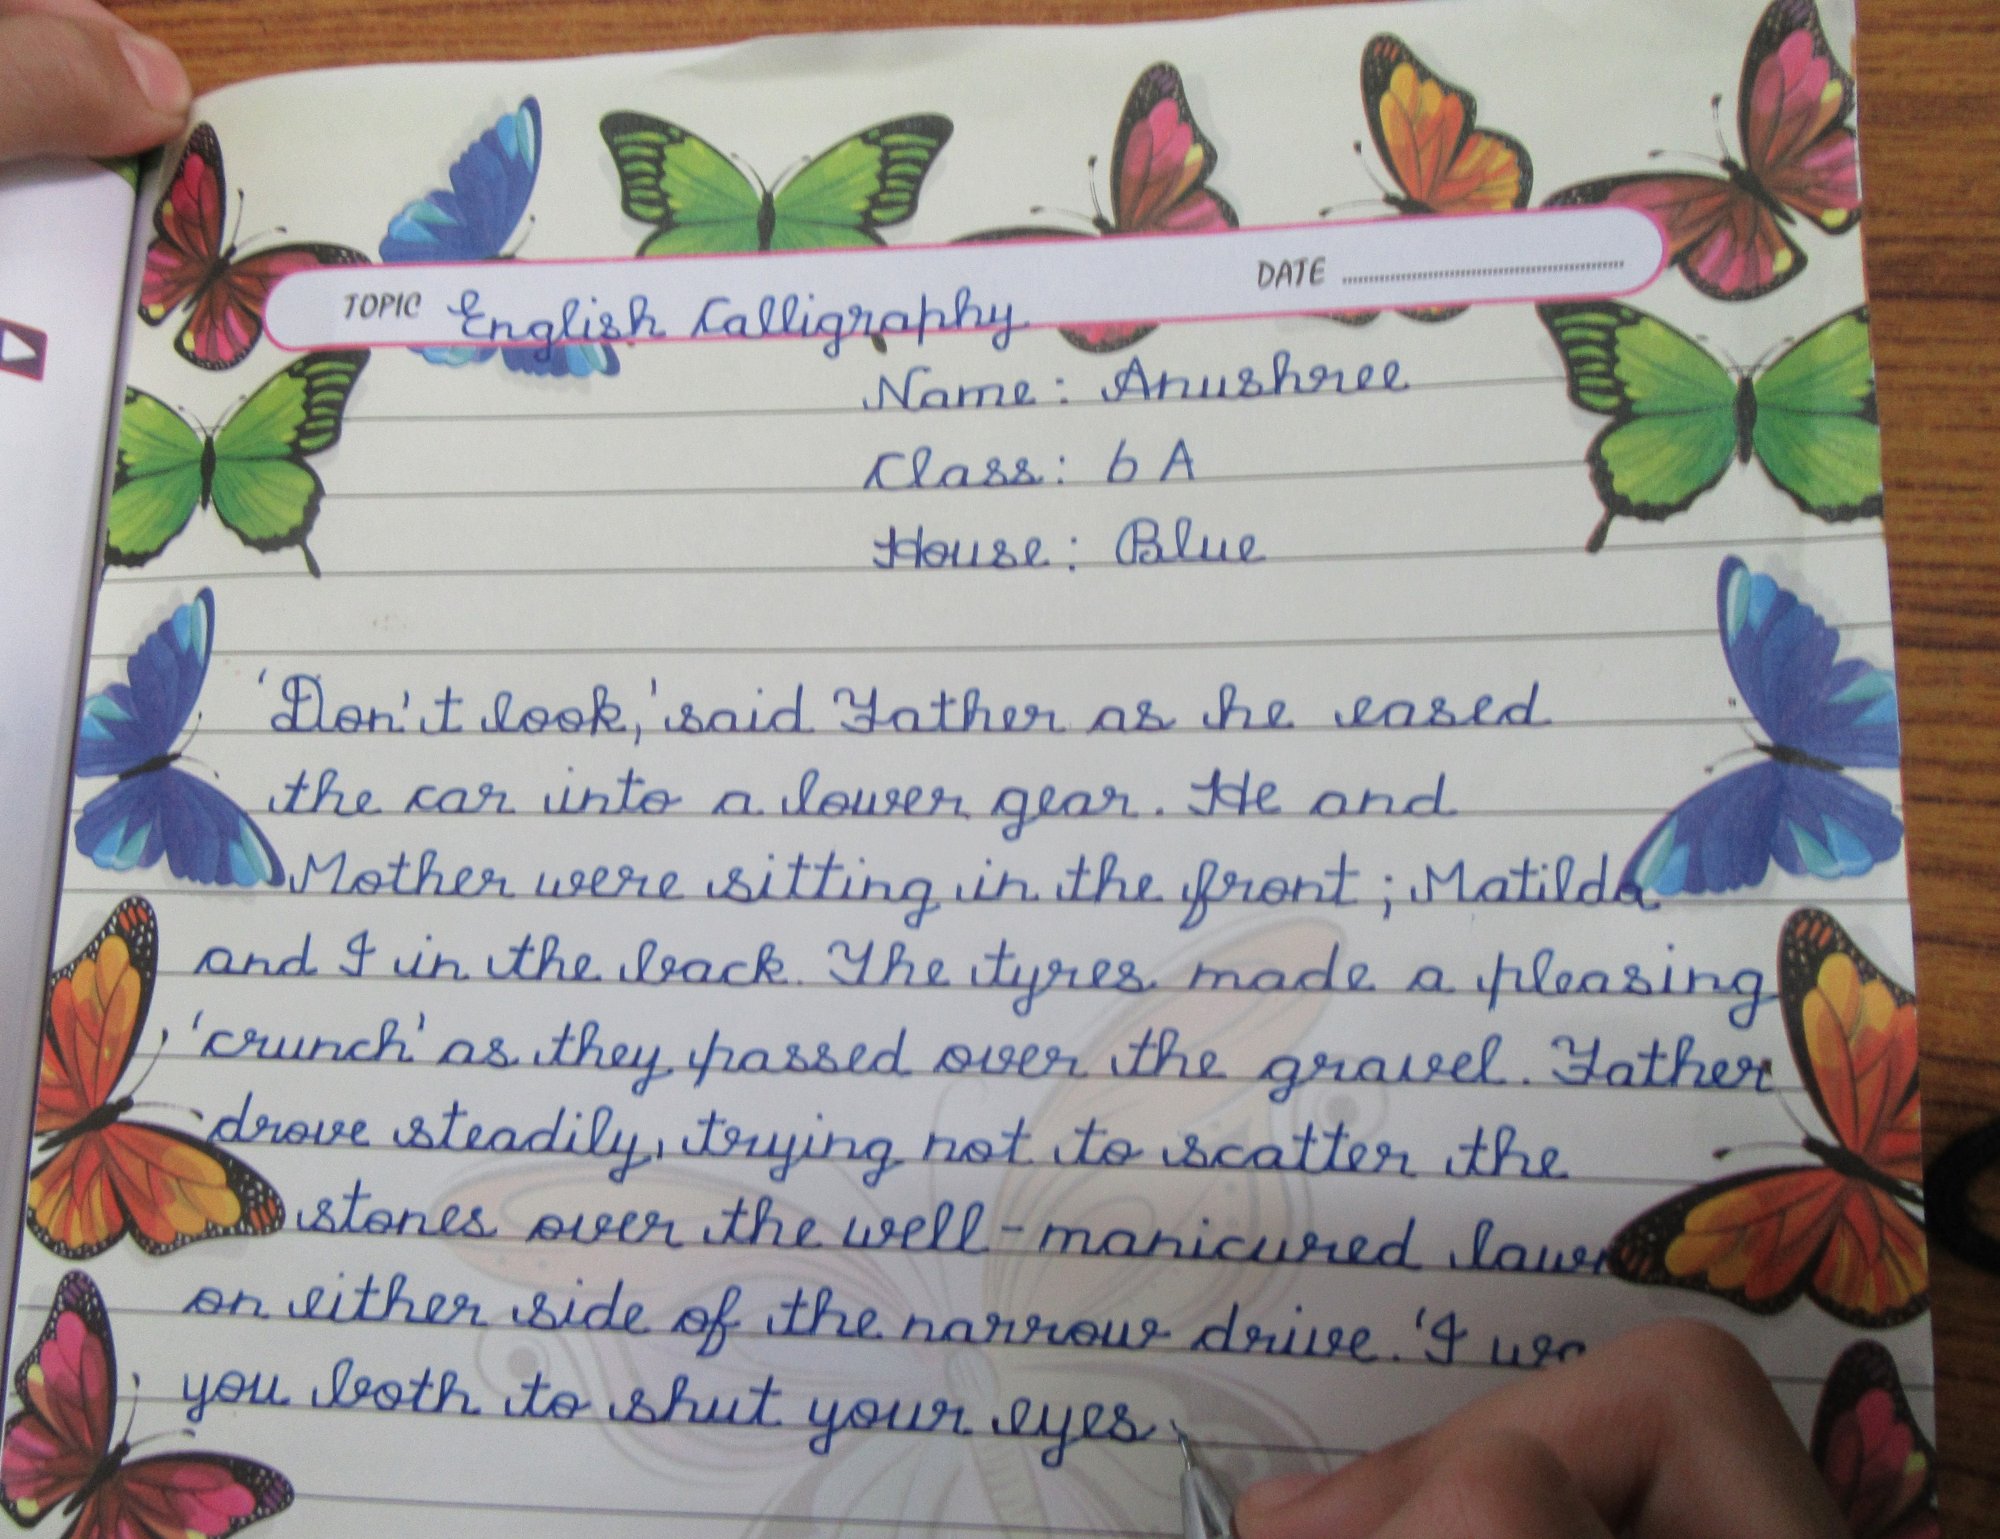 TOPIC English Calligraphy DATE
Name: Anushree
Class: 6 A
House: Blue
'Don't look,' said Father as he eased
the car into a lower gear. He and
Mother were sitting in the front; Matilda
and I in the back. The tyres made a pleasing
'crunch' as they passed over the gravel. Father
drove steadily, trying not to scatter the
stones over the well-manicured
on either side of the narrow drive. 'I
you both to shut your eyes